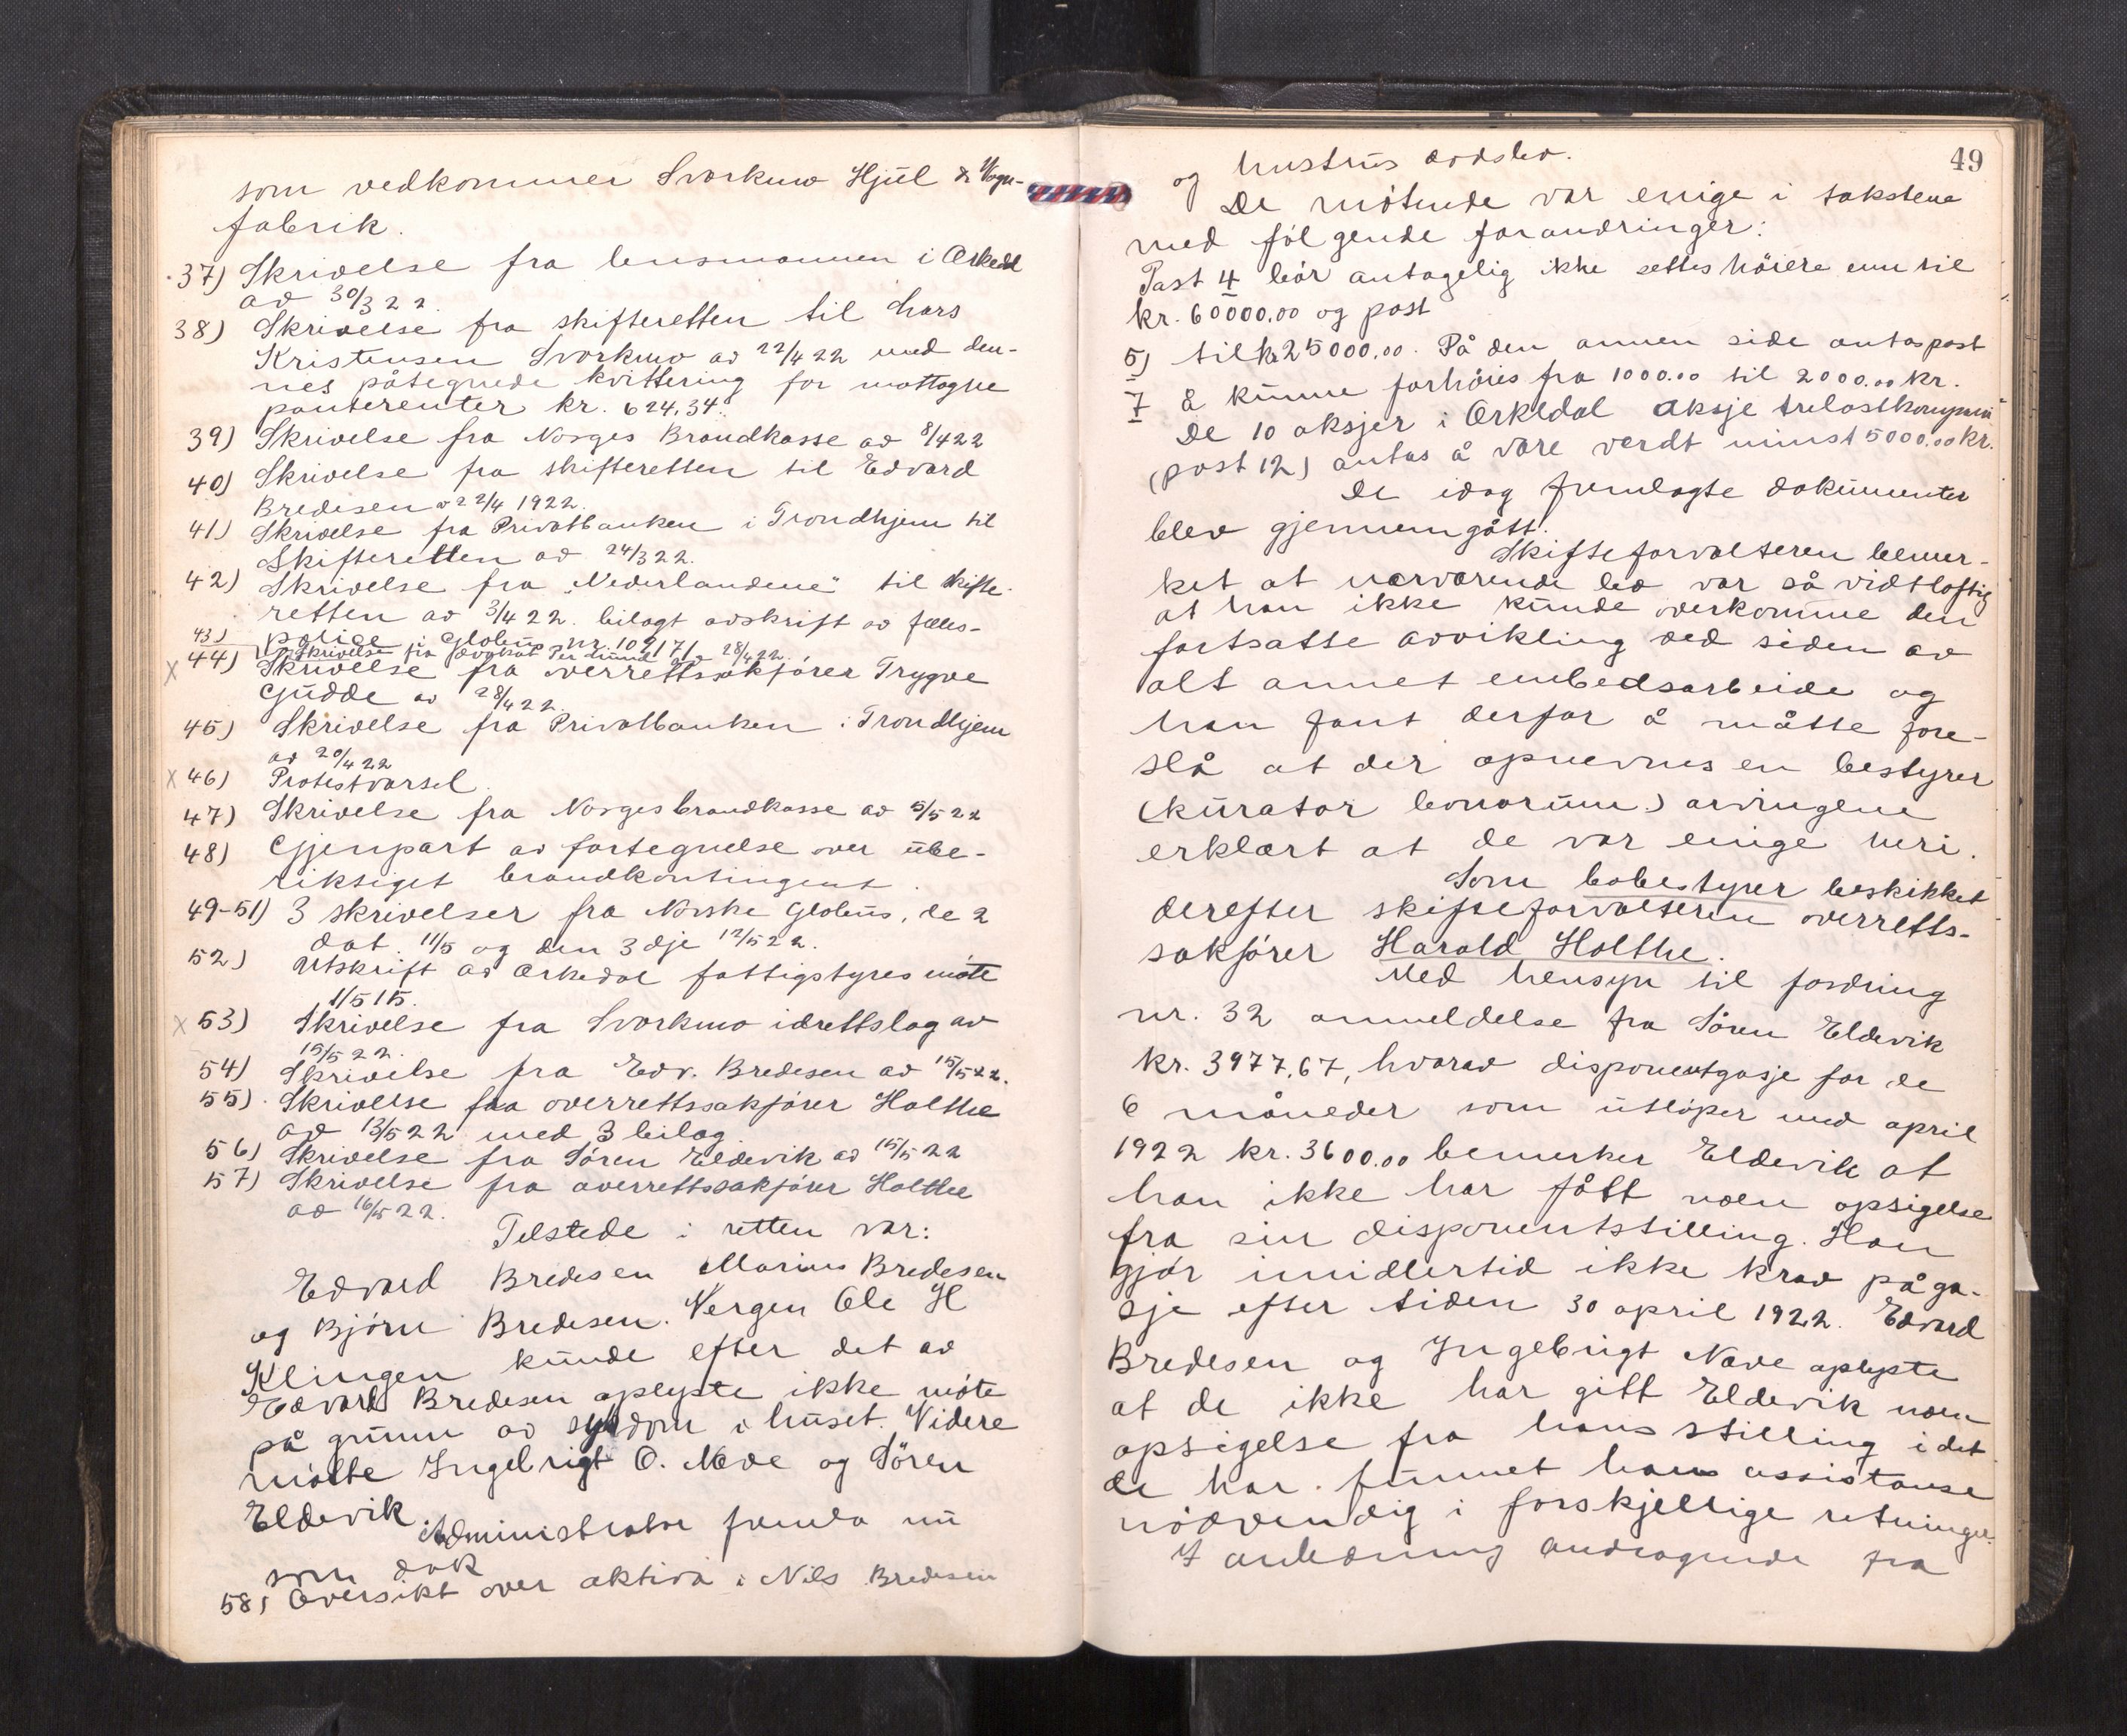 som vedkommer Svorkmo Hjül & Vogn-
fabrik.
37) Skrivelse fra lensmannen i Orkedal
av 30/3 22.
38) Skrivelse fra skifteretten til Lars
Kristensen Svorkmo av 22/4 22 med den-
nes påtegnede kvittering for mottagne
panterenter kr. 624.34.
39) Skrivelse fra Norges Brandkasse av 8/4 22
40) Skrivelse fra skifteretten til Edvard
Bredesen av 22/4 1922.
41) Skrivelse fra Privatbanken i Trondhjem til
Skifteretten av 24/3 22.
42) Skrivelse fra „Nederlandene" til skifte-
retten av 3/4 22. bilagt avskrift av fælles-
police i Globus nr. 109171
43) Skrivelse fra advokat Per Lund av 28/4 22.
x 44) Skrivelse fra overrettssakfører Trygve
Gudde av 28/4 22.
45) Skrivelse fra Privatbanken i Trondhjem
av 20/4 22
x 46) Protestvarsel
47) Skrivelse fra Norges brandkasse av 5/5 22
48) Gjenpart av fortegnelse over übe-
riktiget brandkontingent.
49-51) 3 skrivelser fra Norske Globüs, de 2
dat. 11/5 og den 3dje 12/5 22.
52) Utskrift av Orkedal fattigstyres møte
1/5 15.
x 53) Skrivelse fra Svorkmo idrettslag av
15/5 22.
54) Skrivelse fra Edv. Bredesen av 15/5 22.
55) Skrivelse fra overrettssakfører Holthe
av 13/5 22 med 3 bilag.
56) Skrivelse fra Sören Eldevik av 15/5 22
57) Skrivelse fra overrettssakfører Holthe
av 16/5 22.
Tilstede i retten var:
Edvard Bredesen Marius Bredesen
og Bjørn Bredesen. Vergen Ole H
Klingen kunde efter det av
Edvard Bredesen oplyste ikke møte
på grunn av sykdom i huset. Videre
møtte Ingebrigt O. Nove og Sören
Eldevik.
Administrator fremla nü
som dok
58) Oversikt over aktiva i Nils Bredesen
49
og hustrüs dødsbo.
De møtende var enige i takstene
med følgende forandringer:
Post 4 bör antagelig ikke settes höiere enn til
kr. 60000.00 og post
5) til kr 25000.00. På den annen side antas post
7 å kunne forhöies fra 1000.00 til 2000.00 kr.
De 10 aksjer i Orkedal Aksje trelastkompani
(post 12) antas å være verdt minst 5000.00 kr.
De idag fremlagte dokümenter
blev gjennemgått.
Skifteforvalteren bemer-
ket at nærværende bo var så vidtløftig
at han ikke künde overkomme den
fortsatte avvikling ved siden av
alt annet embedsarbeide og
han fant derfor å måtte fore-
slå at der opnevnes en bestyrer
(kürator bonorüm.) arvingene
erklært at de var enige heri.
Som bobestyrer beskikket
derefter skifteforvalteren overretts-
sakfører Harald Holthe.
Med hensyn til fordring
nr. 32 anmeldelse fra Sören Eldevik
kr. 3977.67, hvorav disponentgasje for de
6 måneder som ütløper med april
1922 kr. 3600.00 bemerker Eldevik at
han ikke har fått noen opsigelse
fra sin disponentstilling. Han
gjør imidlertid ikke krav på ga-
sje efter tiden 30 april 1922. Edvard
Bredesen og Ingebrigt Nove oplyste
at de ikke har gitt Eldevik noen
opsigelse fra hans stilling i det
de har fünnet hans assistanse
nødvendig i forskjellige retninger.
I anledning andragende fra